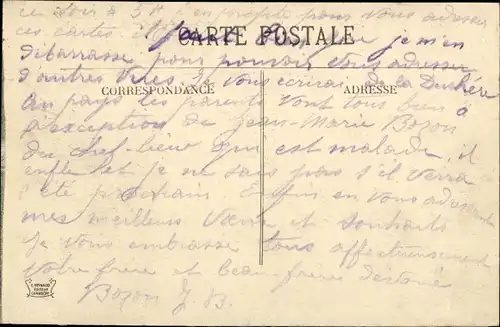 ce soir à 5 H j'en profite pour vous adresser
ces cartes. je m'en
CARTE POSTALE
débarrasse pour pouvoir vous adresser
d'autres vues. Je vous écrirai de la Duchère
CORRESPONDANCE
ADRESSE
Au pays les parents vont tous bien à
l'exception de Jean-Marie Bozon
du chef-lieu qui est malade, il
enfle et je ne sais pas s'il verra
l'été prochain. Enfin en vous adressant
mes meilleurs vœux et souhaits
Je vous embrasse tous affectueusement
Votre frère et beau-frère
Bozon J. B.